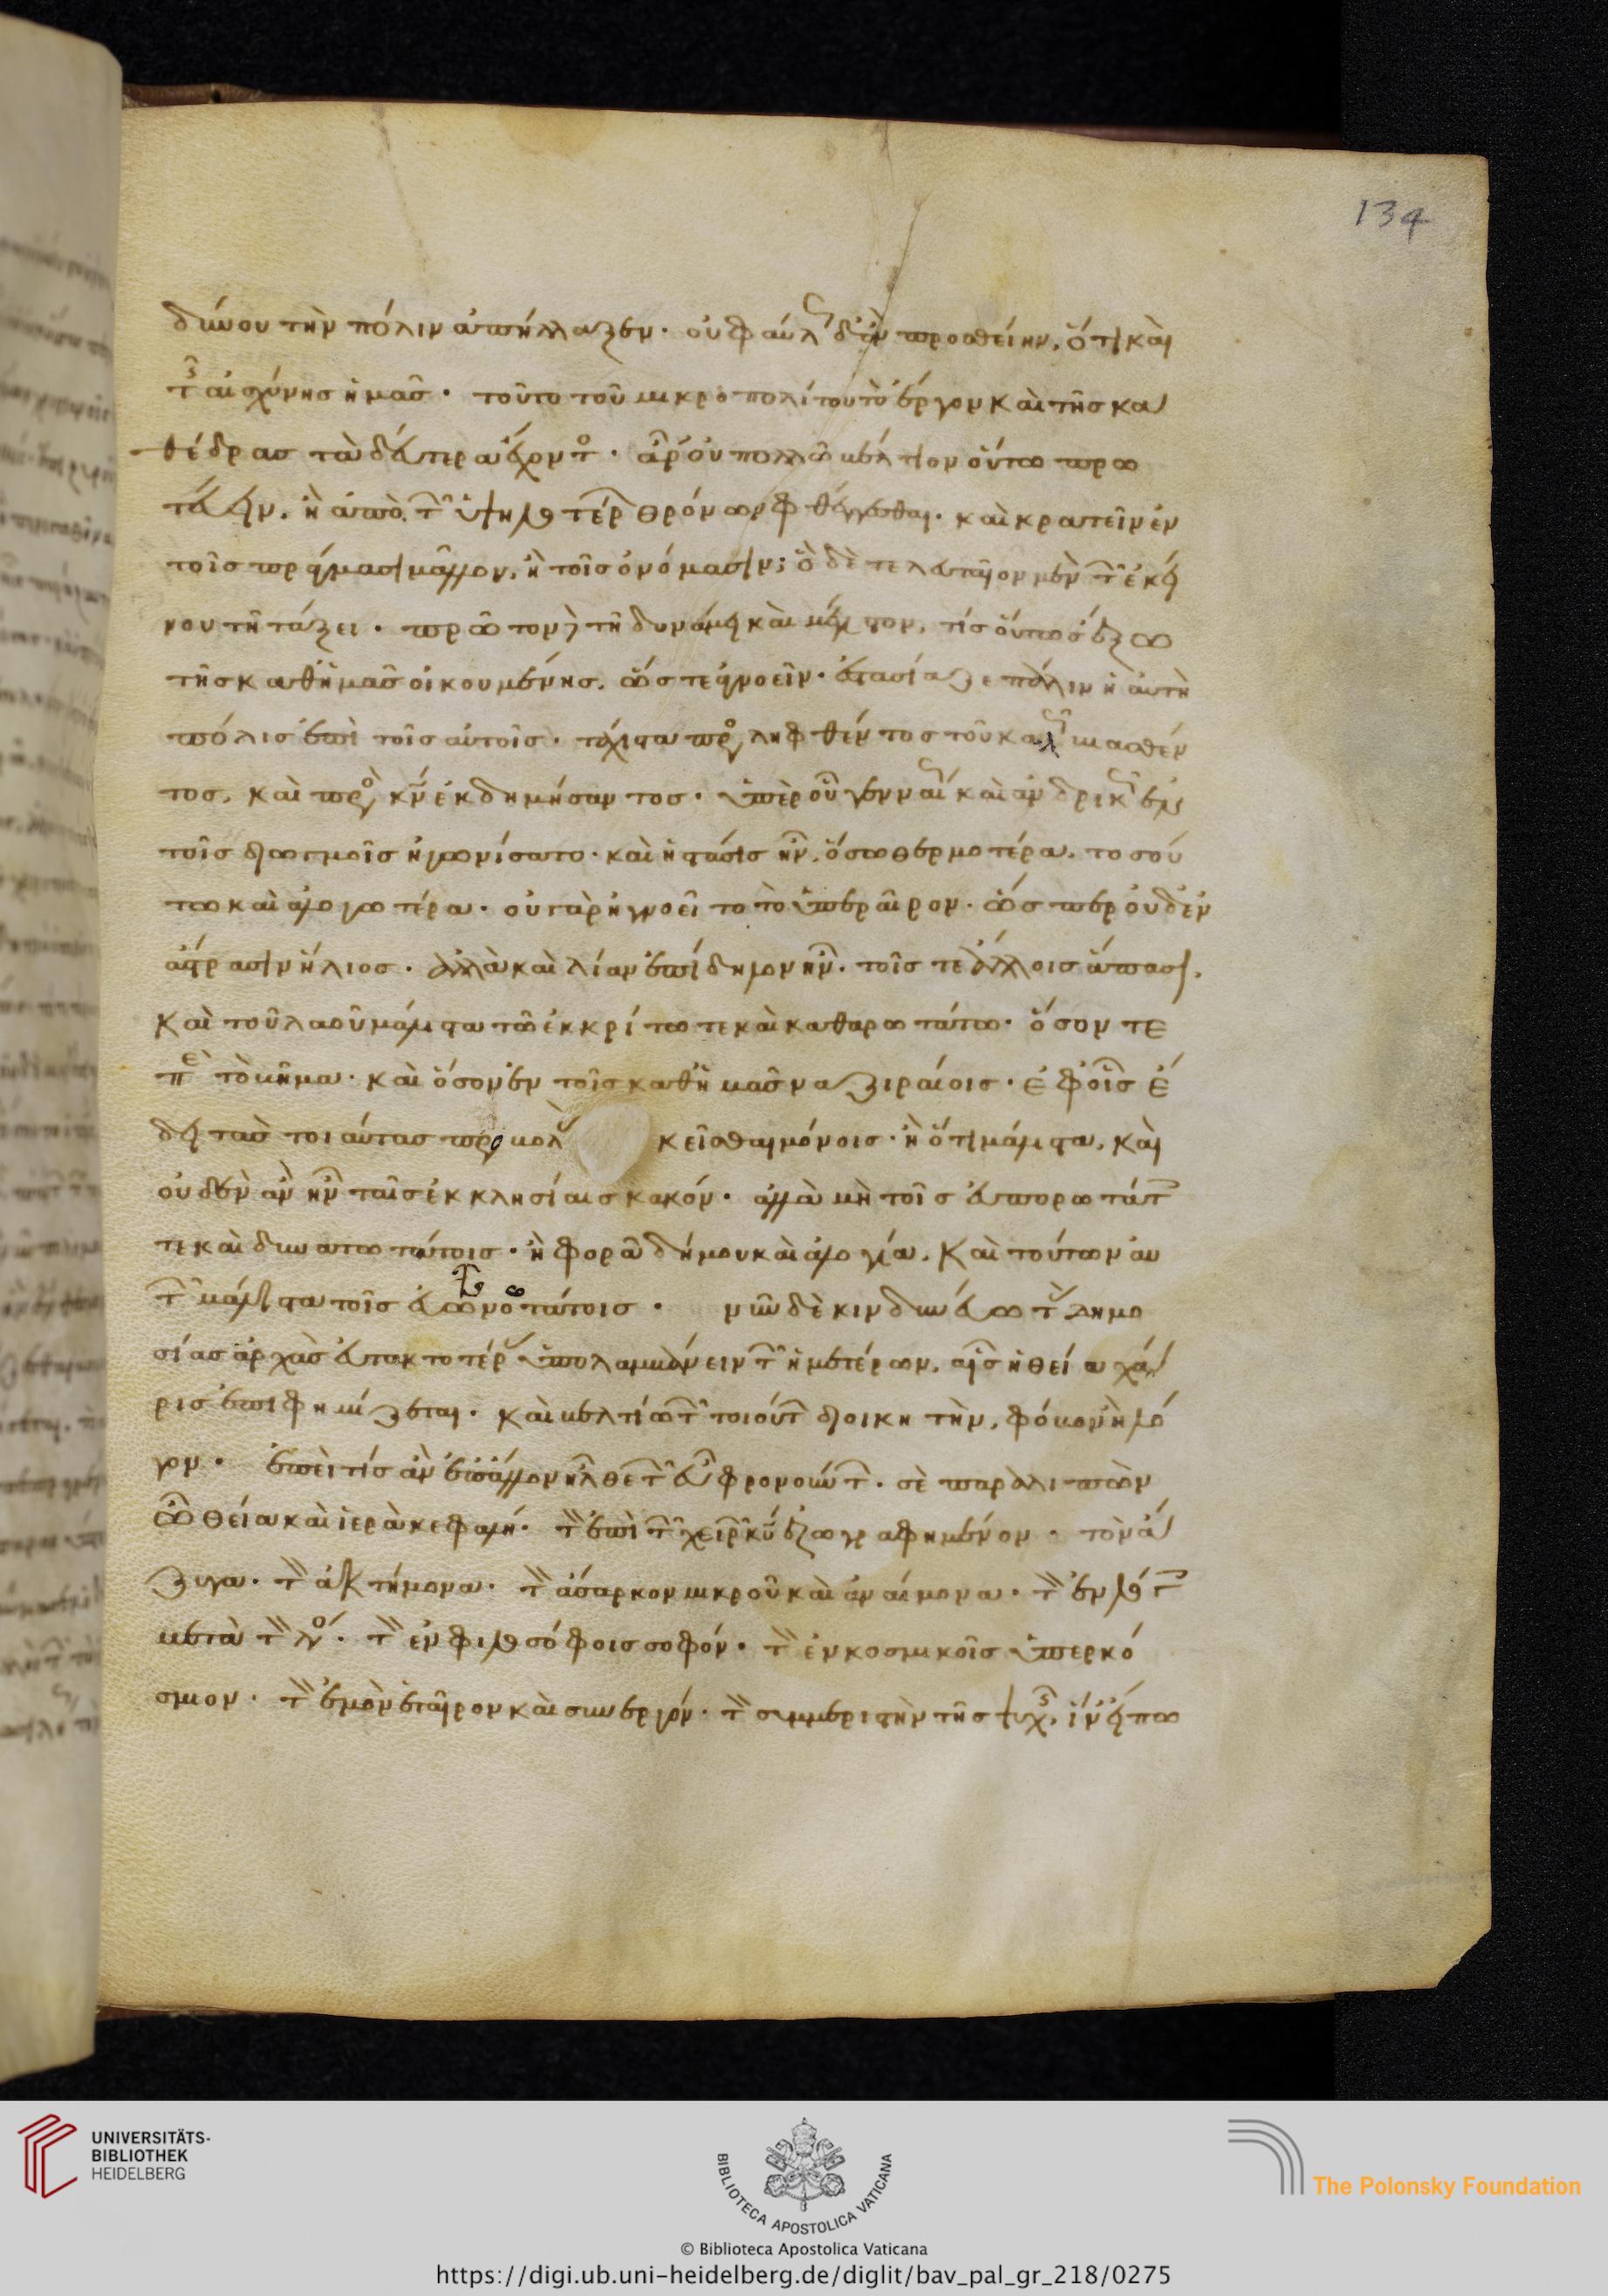 δύνου τὴν πόλιν ἀπήλλαξεν· οὐ φαύλως δ' ἂν προσθείην, ὅτι καὶ
τῆς αἰσχύνης ἡμᾶς· τοῦτο τοῦ μικροπολίτου τὸ ἔργον καὶ τῆς κα
θέδρας τὰ δευτερεῖα ἔχοντος· ἆρ' οὐ πολλῶ βέλτιον οὕτω πρω
τεύειν, ἢ ἀπὸ τῶν ὑψηλοτέρων θρόνων φθέγγεσθαι· καὶ κρατεῖν ἐν
τοῖς πράγμασι μᾶλλον, ἢ τοῖς ὀνόμασιν; ὃ δὲ τελευταῖον μὲν τῶν ἐκεί
νου τῆ τάξει· πρῶτον δὲ τῆ δυνάμει καὶ μέγιστον, τίς οὕτως ἔξω
τῆς καθ' ἡμᾶς οἰκουμένης, ὥστε ἀγνοεῖν· ἐστασίαζε πάλιν ἡ αὐτὴ
πόλις ἐπὶ τοῖς αὐτοῖς· τάχιστα προσληφθέντος τοῦ καλῶς βιασθέν
τος, καὶ πρὸς κν ἐκδημήσαντος· ὑπὲρ οὗ γενναίως καὶ ἀνδρικῶς ἐν
τοῖς διωγμοῖς ἠγωνίσατο· καὶ ἡ στάσις ἦν, ὅσω θερμοτέρα, τοσού
τω καὶ ἀλογωτέρα· οὐ γὰρ ἠγνοεῖτο τὸ ὑπεραῖρον· ὥσπερ οὐδ' ἐν
ἀστράσιν ἥλιος· ἀλλὰ καὶ λίαν ἐπίδηλον ἦν· τοῖς τε ἄλλοις ἅπασι,
καὶ τοῦ λαοῦ μάλιστα τῶ ἐκκρίτω τε καὶ καθαρωτάτω· ὅσον τε
περὶ τὸ βῆμα· καὶ ὅσον ἐν τοῖς καθ' ἡμᾶς ναζιραίοις· ἐφ' οἷς ἔ
δει τὰς τοιαύτας προβολὰς κεῖσθαι μόνοις· ἢ ὅτι μάλιστα, καὶ
οὐδὲν ἂν ἦν ταῖς ἐκκλησίαις κακόν· ἀλλὰ μὴ τοῖς εὐπορωτάτοις
τε καὶ δυνατωτάτοις· ἢ φορᾶ δήμου καὶ ἀλογία, καὶ τούτων αὐ
τῶν μάλιστα τοῖς εὐωνοτάτοις· νῦν δὲ κινδυνεύω τὰς δημο
σίας ἀρχὰς εὐτακτοτέρας ὑπολαμβάνειν τῶν ἡμετέρων, αἷς ἡ θεία χά
ρις ἐπιφημίζεται· καὶ βελτίω τῶν τοιούτων διοικητὴν, φόβον ἢ λό
γον· ἐπεὶ τίς ἂν ἐπ' ἄλλον ἦλθε τῶν εὖ φρονούντων· σὲ παραλιπὼν
ὦ θεία καὶ ἱερὰ κεφαλή· τὸν ἐπὶ τῶν χειρῶν κυ ἐζωγραφημένον· τὸν ἄ
ζυγα· τὸν ἀκτήμονα· τὸν ἄσαρκον μικροῦ καὶ ἀναίμονα· τὸν ἐν λόγοις
μετὰ τὸν λόγον· τὸν ἐν φιλοσόφοις σοφόν· τὸν ἐν κοσμικοῖς ὑπερκό
σμιον· τὸν ἐμὸν ἑταῖρον καὶ συνεργόν· τὸν συμμεριστὴν τῆς ψυχῆς, ἵν' εἴπω
134
UNIVERSITÄTS-
BIBLIOTHEK
HEIDELBERG
BIBLIOTECA APOSTOLICA VATICANA
The Polonsky Foundation
© Biblioteca Apostolica Vaticana
https://digi.ub.uni-heidelberg.de/diglit/bav_pal_gr_218/0275